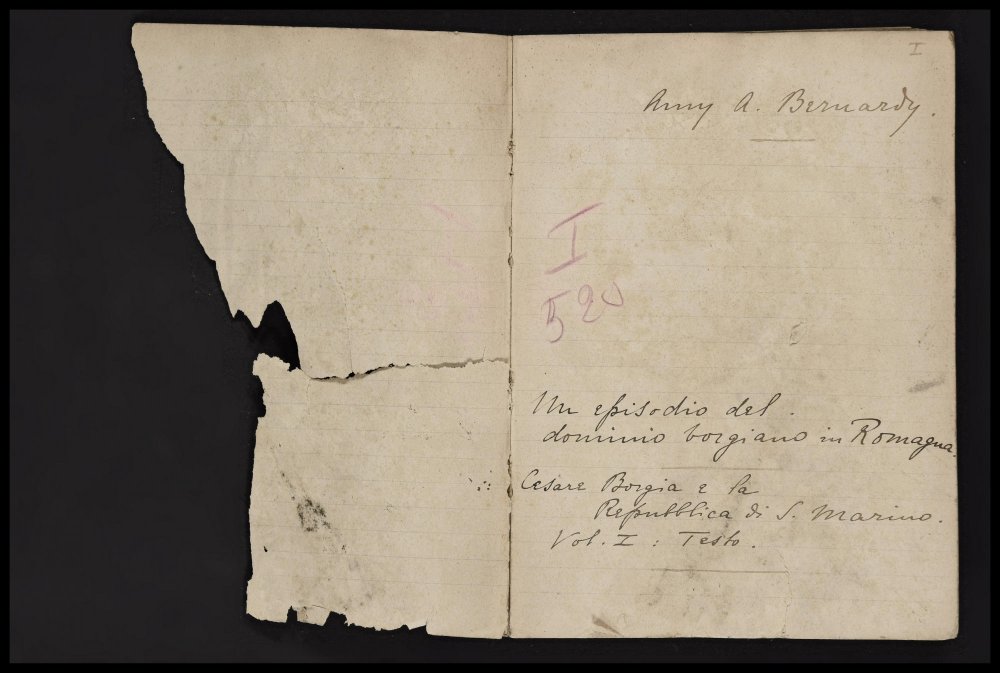 I
Amy A. Bernardy.
I
520
Un episodio del
dominio borgiano in Romagna.
Cesare Borgia e la
Repubblica di S. Marino.
Vol. I : Testo.